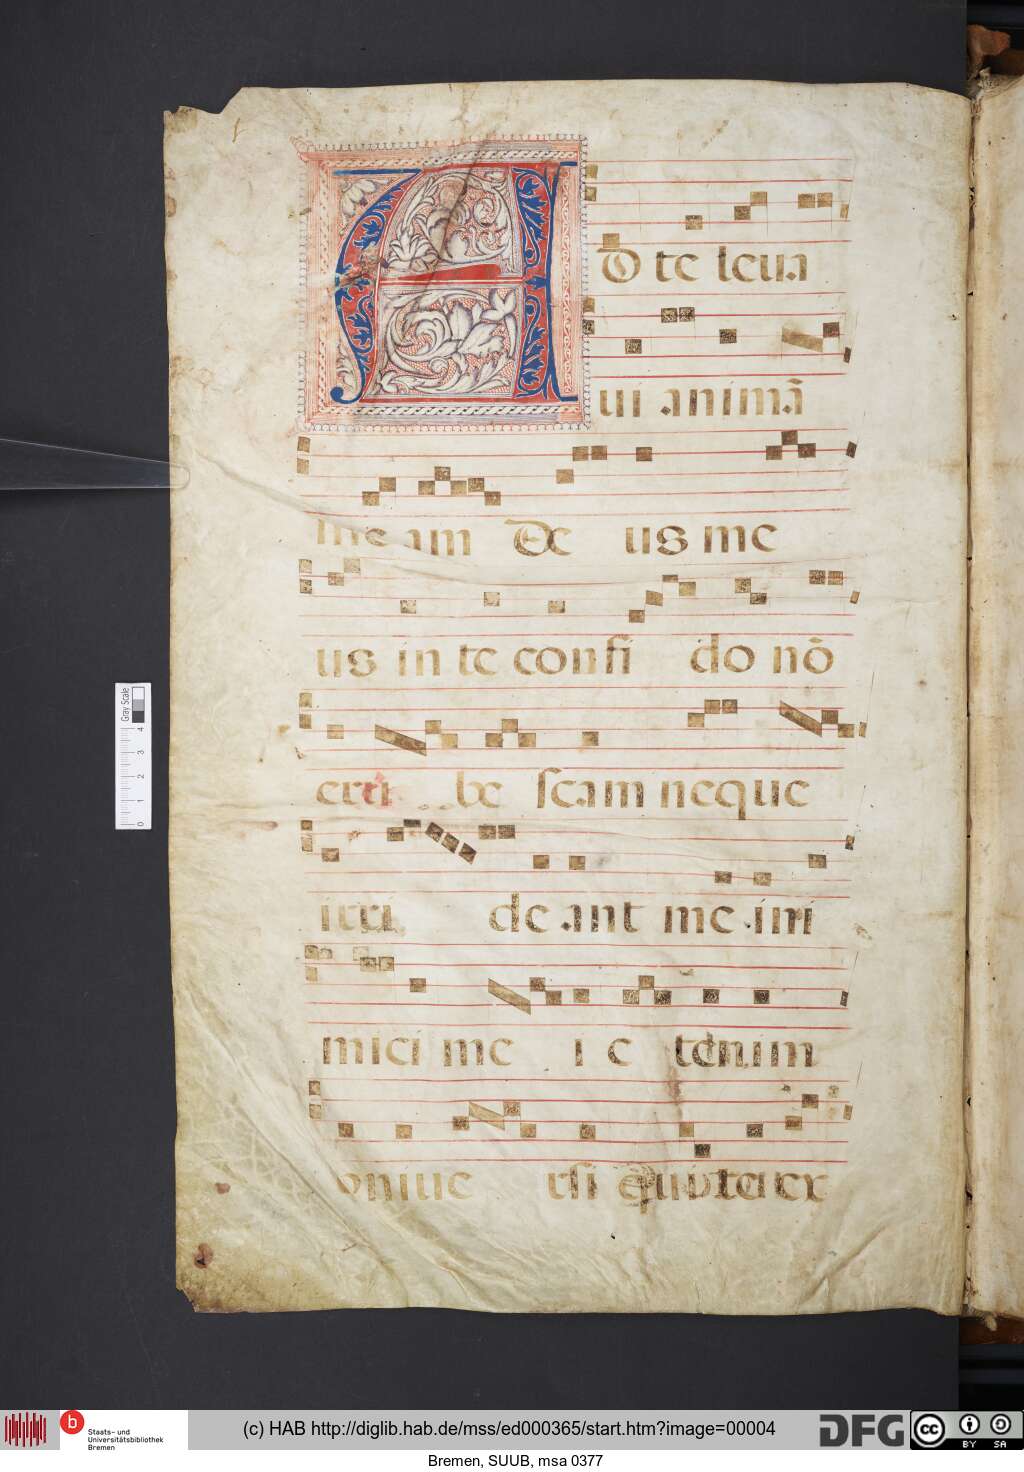 AD te leua
ui animā
meam De us me
us in te confi do nō
eru be scam neque
irri de ant me ini
mici me i e tenim
vniue rsi qui te ex
Gray Scale
4
3
2
1
0
b Staats- und
Universitätsbibliothek
Bremen
(c) HAB http://diglib.hab.de/mss/ed000365/start.htm?image=00004
DFG
cc BY SA
Bremen, SUUB, msa 0377